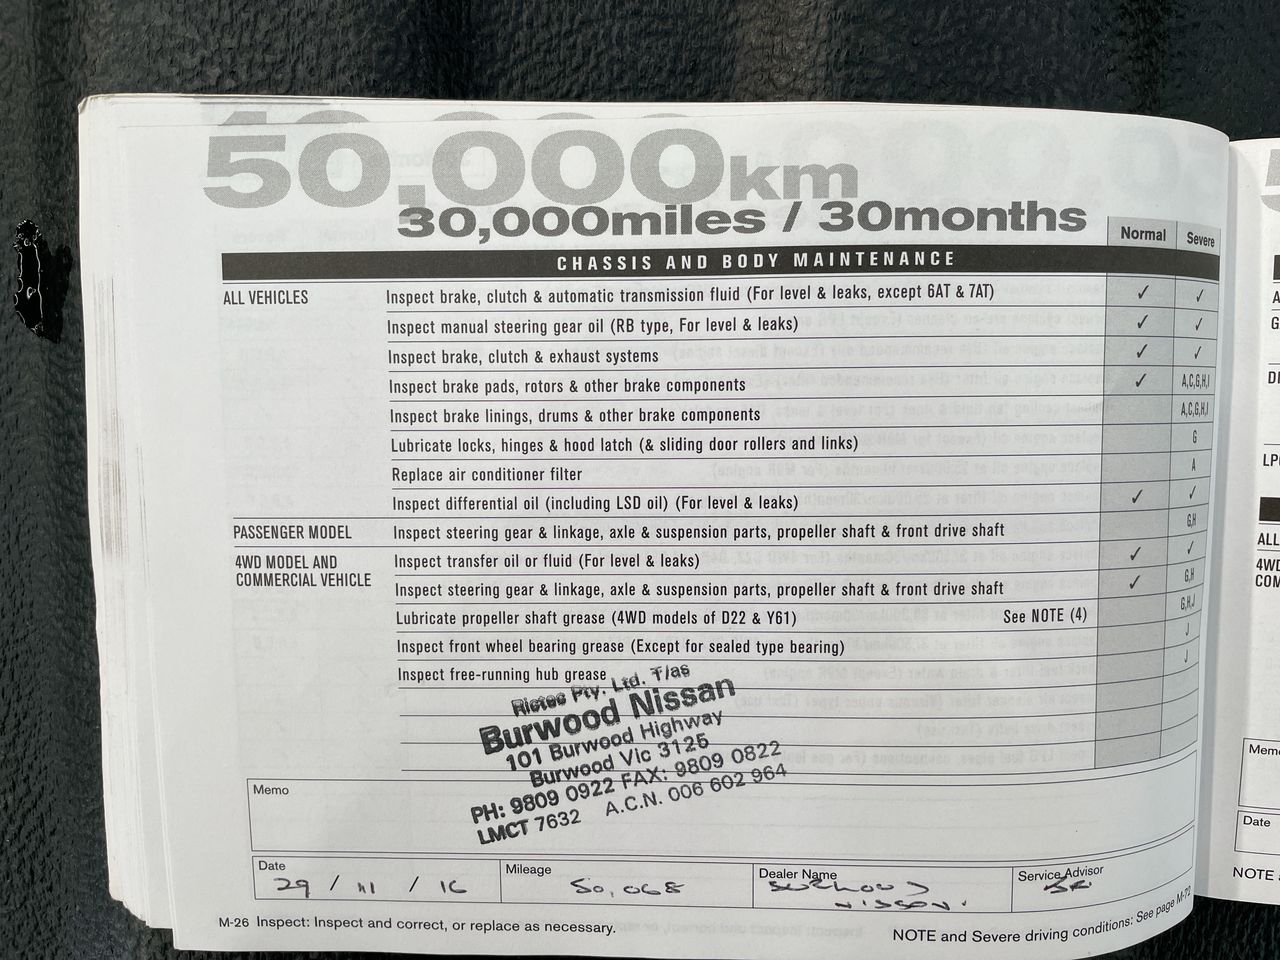 50,000km
30,000miles / 30months
Normal Severe
CHASSIS AND BODY MAINTENANCE
ALL VEHICLES Inspect brake, clutch & automatic transmission fluid (For level & leaks, except 6AT & 7AT) ✓ ✓
Inspect manual steering gear oil (RB type, For level & leaks) ✓ ✓
Inspect brake, clutch & exhaust systems ✓ ✓
Inspect brake pads, rotors & other brake components ✓ A,C,G,H,I
Inspect brake linings, drums & other brake components A,C,G,H,I
Lubricate locks, hinges & hood latch (& sliding door rollers and links) G
Replace air conditioner filter A
Inspect differential oil (including LSD oil) (For level & leaks) ✓ ✓
PASSENGER MODEL Inspect steering gear & linkage, axle & suspension parts, propeller shaft & front drive shaft G,H
4WD MODEL AND Inspect transfer oil or fluid (For level & leaks) ✓ ✓
COMMERCIAL VEHICLE Inspect steering gear & linkage, axle & suspension parts, propeller shaft & front drive shaft ✓ G,H
Lubricate propeller shaft grease (4WD models of D22 & Y61) See NOTE (4) G,H,J
Inspect front wheel bearing grease (Except for sealed type bearing) J
Inspect free-running hub grease J
Pty. Ltd. T/as
Burwood Nissan
101 Burwood Highway
Burwood Vic 3125
PH: 9809 0922 FAX: 9809 0822
LMCT 7632 A.C.N. 006 602 964
Memo
Date Mileage Dealer Name Service Advisor
29 / 11 / 16 50,068 BURWOOD
NISSAN.
M-26 Inspect: Inspect and correct, or replace as necessary.
NOTE and Severe driving conditions: See page M-72
ALL
4WD
COM
Memo
Date
NOTE